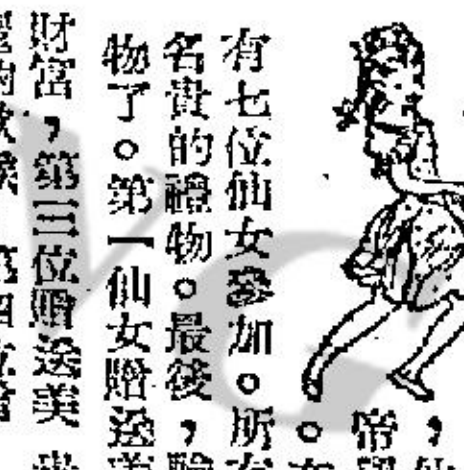 帝，
有七位仙女參加。所
名貴的禮物。最後，
物了。第一仙女贈送
財富，第三位贈送美